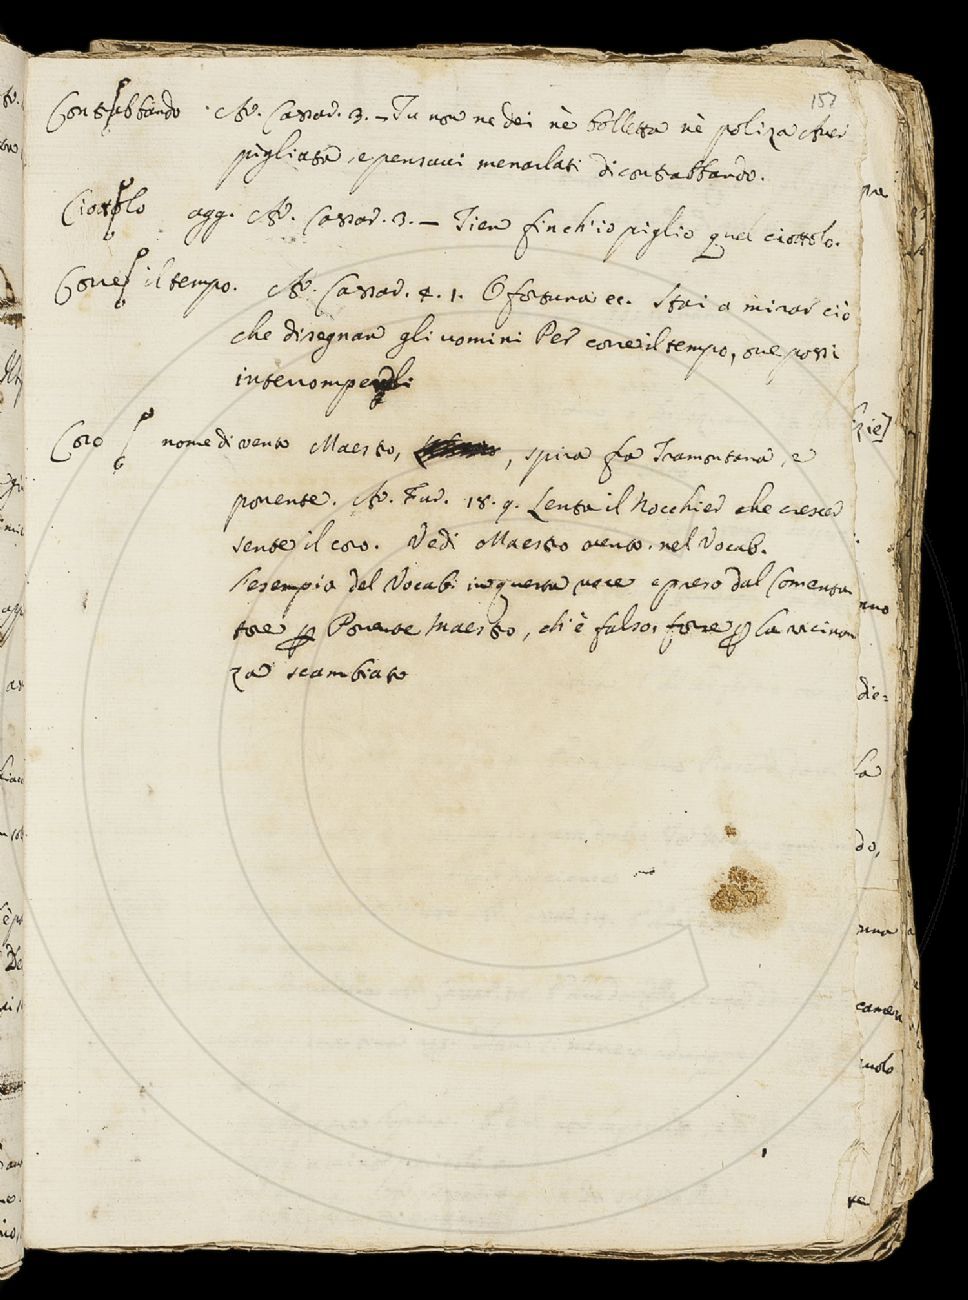 157
Contrabbando Ar. Cassar. 3. – Tu non ne dei nè bolletta nè poliza aver
pigliata, e pensavi menarlati di contrabbando.
Ciottolo agg. Ar. Cassar. 3. – Tien finch'io piglio quel ciottolo.
Corre il tempo. Ar. Cassar. 4. 1. O fortuna ec. Stai a mirar ciò
che disegnan gli uomini Per corre il tempo, ove possi
interromperli
Coro nome di vento Maestro, , spira fra Tramontana, e
ponente. Ar. Fur. 18. 9. Lenta il Nocchier che crescer
sente il coro. Vedi Maestro vento. nel Vocab.
L'esempio del Vocab. in questa voce è preso dal Comenta
tore p Ponente Maestro, ch'è falso, forse p la vicinan
za scambiato
ne
zie]
nno
die=
la
do,
nna
camera
nuolo
te